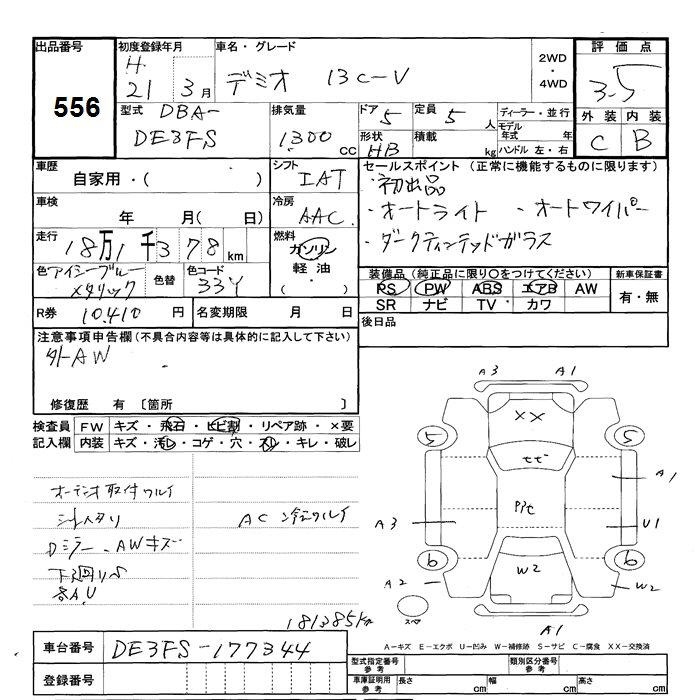 出品番号
556
初度登録年月
H.
21 3月
車名・グレード
デミオ 13C-V
2WD
・
4WD
評価点
3.5
外装 内装
C B
型式 DBA-
DE3FS
排気量
1300 cc
ドア 5
定員 5 人
形状
HB
積載 kg
ディーラー・並行
モデル年式 年
ハンドル 左・右
車歴
自家用・( )
シフト
IAT
車検
年 月( 日)
冷房
AAC
走行
18万1千378 km
燃料
ガソリン
軽油
・( )
色 アイシーブルー
メタリック
色替
色コード
33Y
R券 10,410 円
名変期限 月 日
セールスポイント (正常に機能するものに限ります)
・初出品
・オートライト ・オートワイパー
・ダークティンテッドガラス
装備品(純正品に限り○をつけてください)
PS PW ABS エアB AW
SR ナビ TV カワ
新車保証書
有・無
後日品
注意事項申告欄(不具合内容等は具体的に記入して下さい)
外AW
修復歴 有 〔箇所 〕
検査員 FW キズ・飛石・ヒビ割・リペア跡・×要
記入欄 内装 キズ・汚レ・コゲ・穴・スレ・キレ・破レ
オーデオ取付ワルイ
シートスタリ
AC 冷エワルイ
Dミラー、AWキズ
下廻りS
各A.U
181385km
A3 A1
XX
5 5
ヒビ
A1
P飛
A3
U1
6 6
A2
W2
W2
スペ
A1
A-キズ E-エクボ U-凹み W-補修跡 S-サビ C-腐食 XX-交換済
車台番号 DE3FS-177344
登録番号
型式指定番号
参考
類別区分番号
参考
車庫証明用
参考
長さ cm 幅 cm 高さ cm